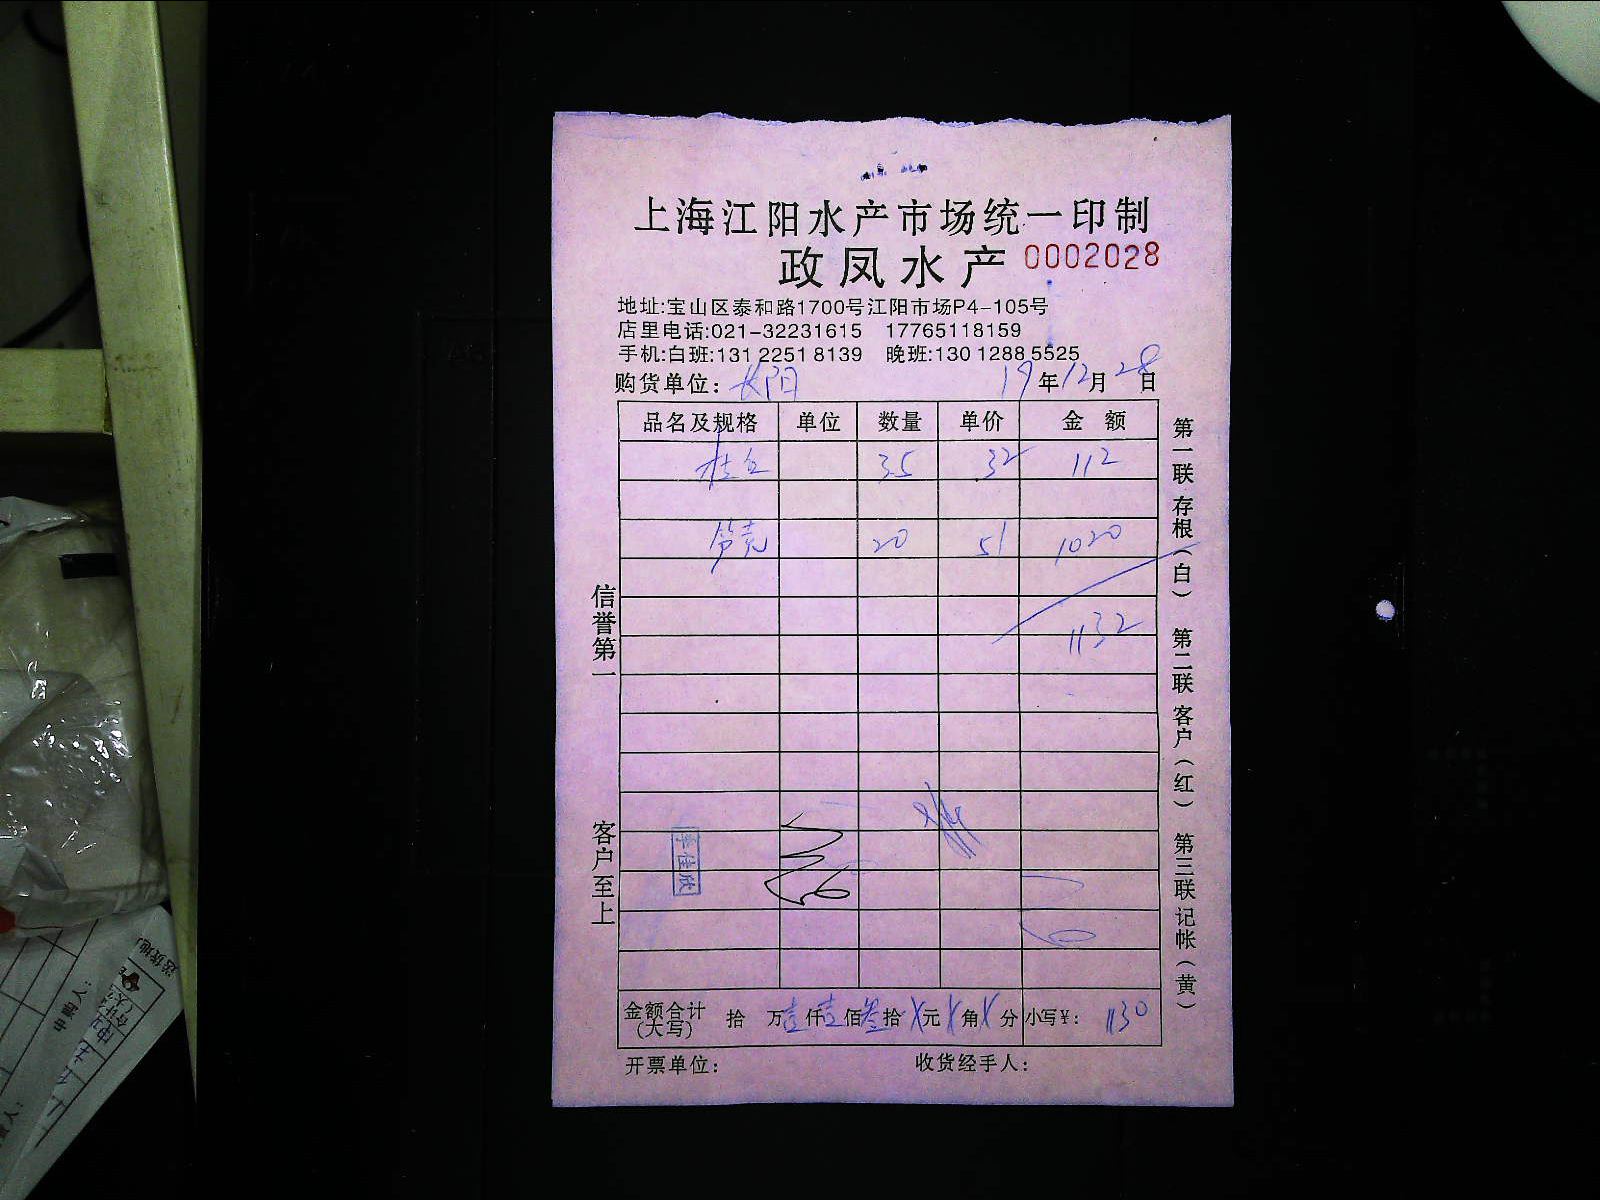 上海江阳水产市场统一印制
政凤水产 0002028
地址:宝山区泰和路1700号江阳市场P4-105号
店里电话:021-32231615 17765118159
手机:白班:131 2251 8139 晚班:130 1288 5525
购货单位: 长阳 19年12月28日
品名及规格 单位 数量 单价 金额
桂鱼 35 32 112
笋壳 20 51 1020
1132
李佳欣
金额合计(大写) 拾 万壹仟壹佰叁拾X元X角X分 小写¥: 1130
开票单位: 收货经手人:
信誉第一 客户至上
第一联 存根(白) 第二联 客户(红) 第三联 记帐(黄)
申购人:
送货地